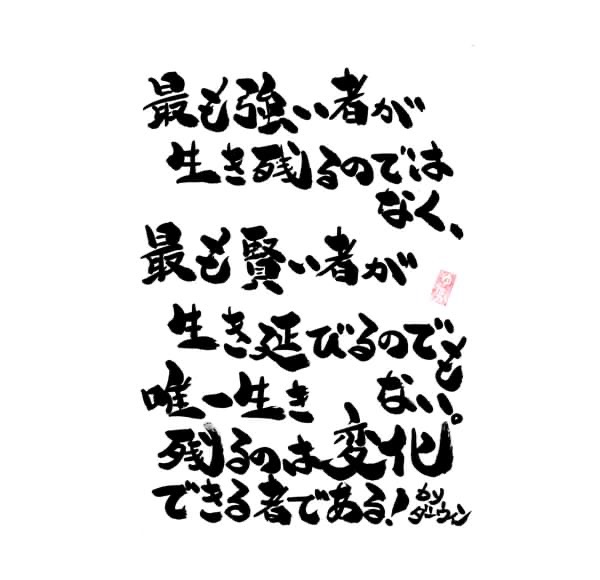 最も強い者が
生き残るのでは
なく、
最も賢い者が
生き延びるのでも
ない。
唯一生き
残るのは変化
できる者である!
byダーウィン